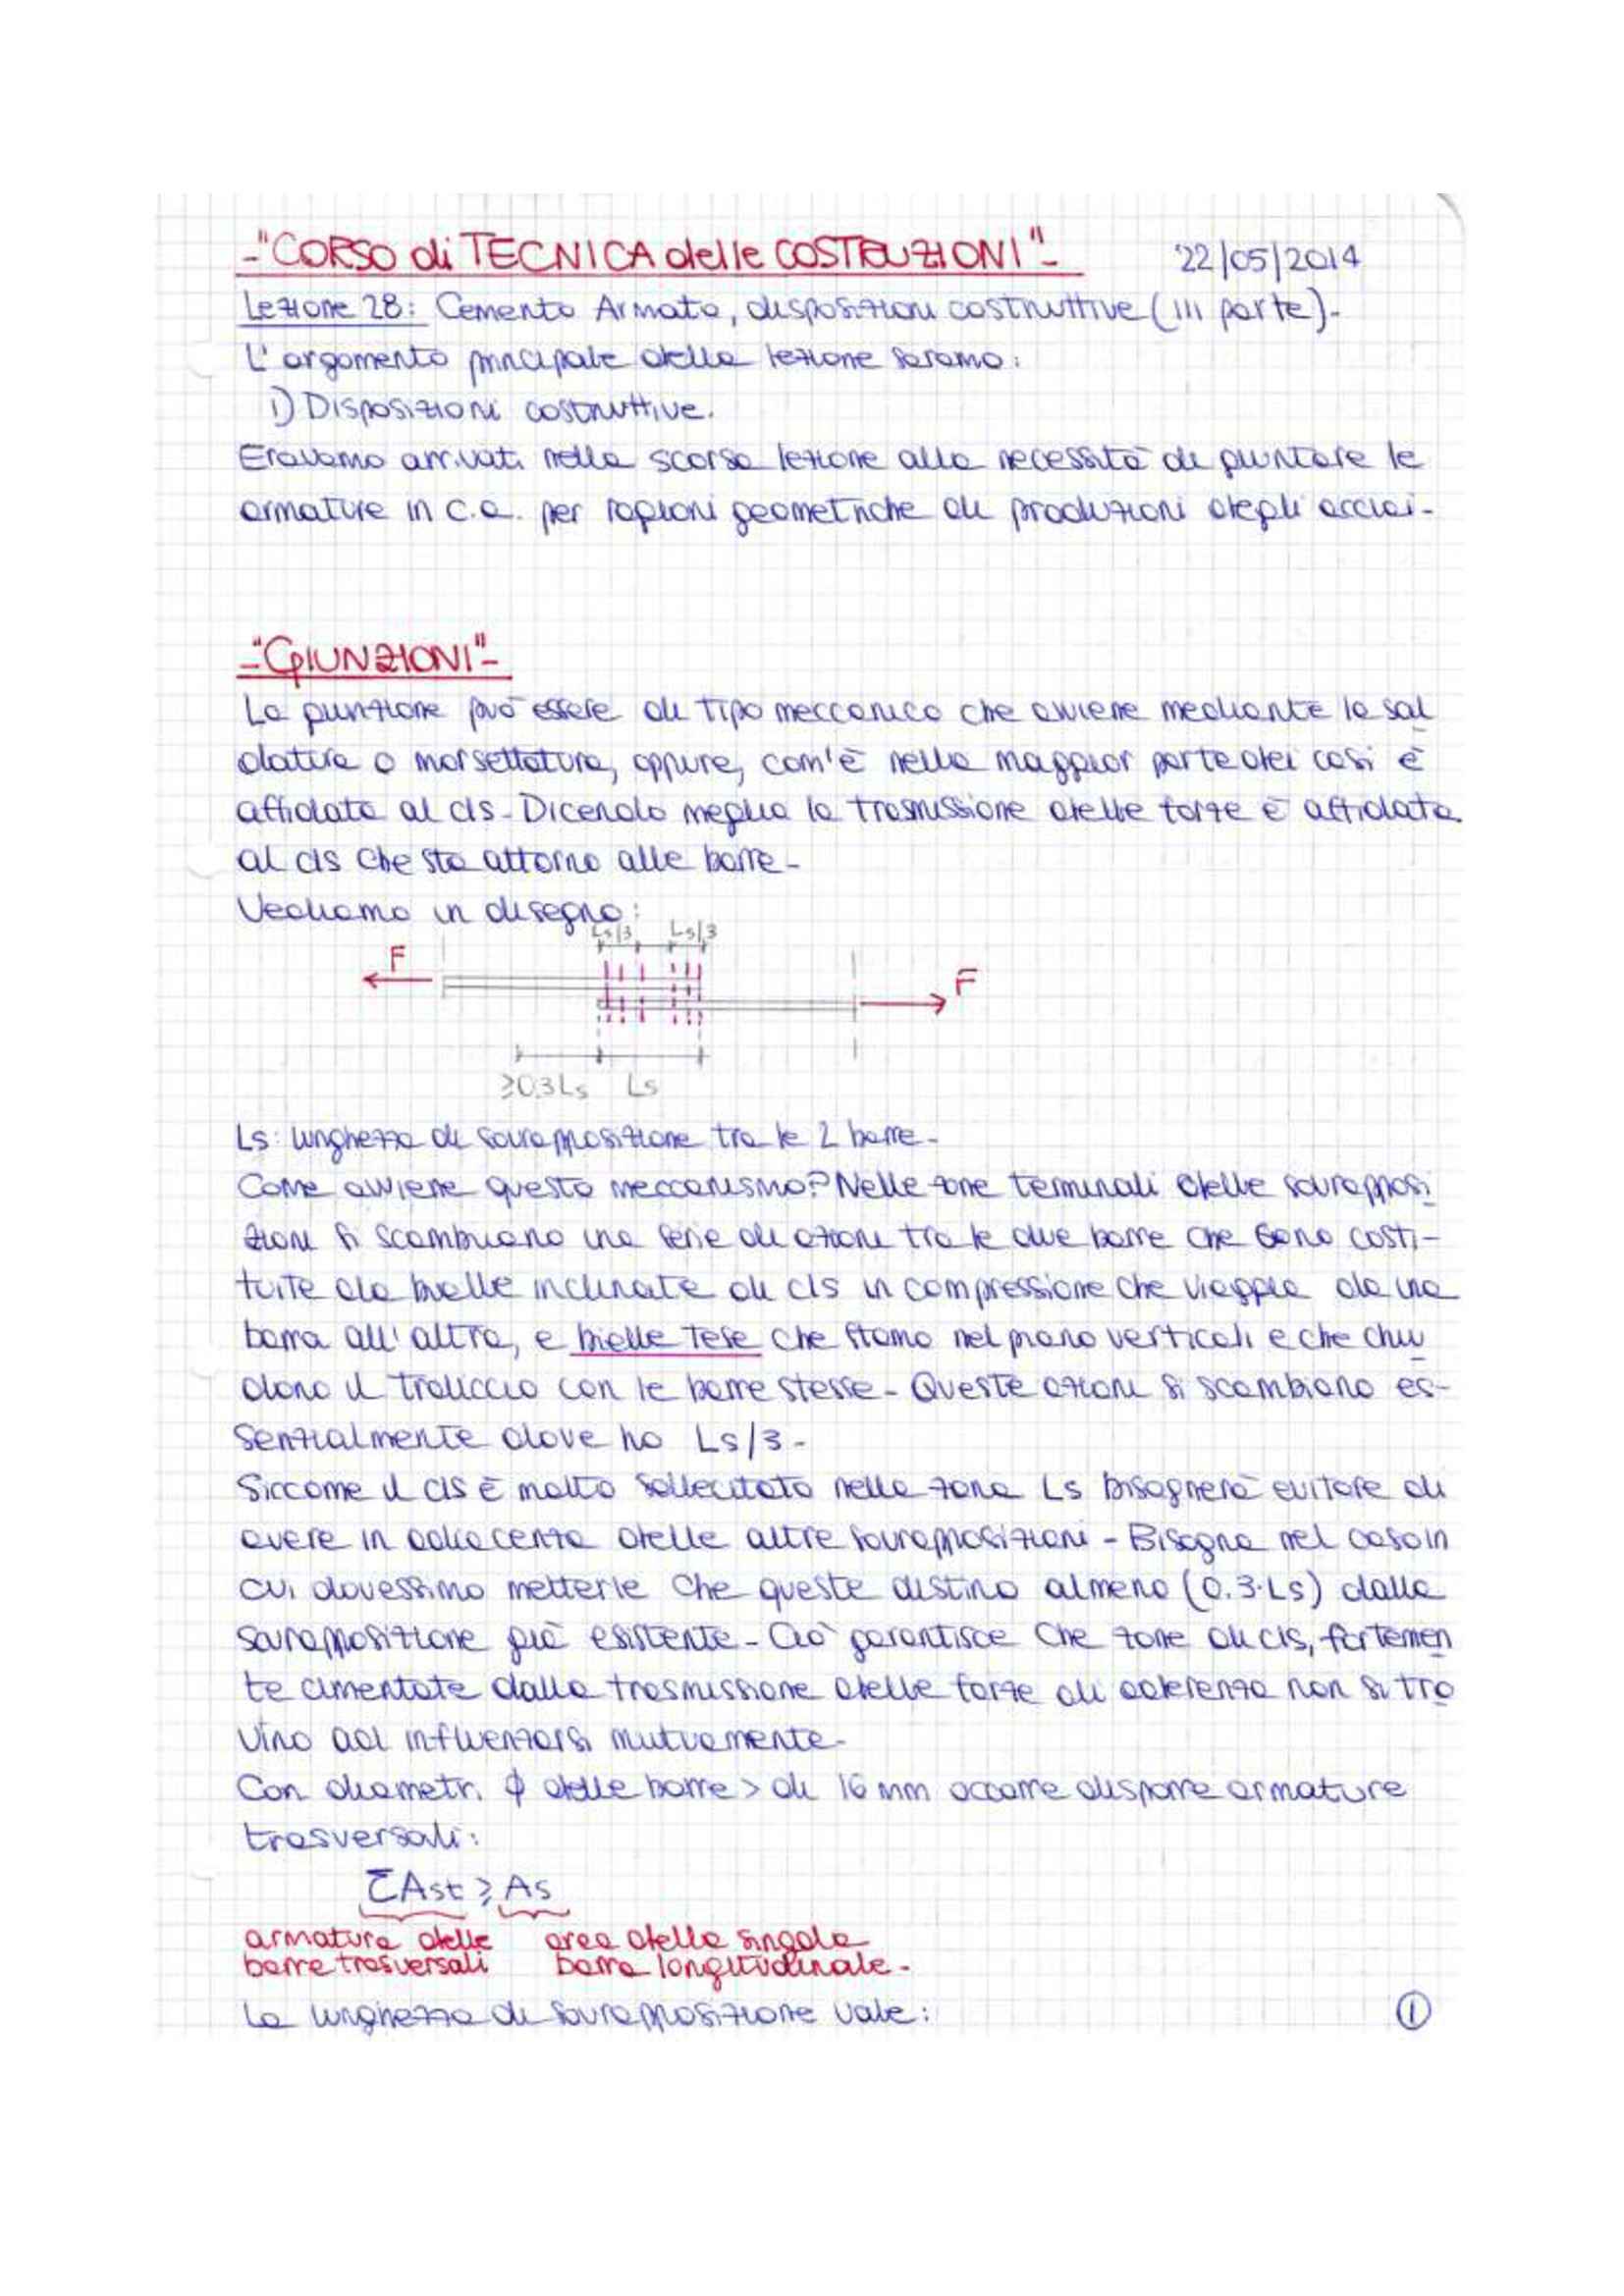 -"CORSO di TECNICA delle COSTRUZIONI"- 22/05/2014
Lezione 28: Cemento Armato, disposizioni costruttive (III parte).
L'argomento principale della lezione saranno:
1) Disposizioni costruttive.
Eravamo arrivati nella scorsa lezione alla necessità di giuntare le
armature in c.a. per ragioni geometriche di produzioni degli acciai-
-"GIUNZIONI"-
La giunzione può essere di tipo meccanico che avviene mediante la sal
datura o morsettatura, oppure, com'è nella maggior parte dei casi è
affidata al cls- Dicendolo meglio la trasmissione delle forze è affidata
al cls che sta attorno alle barre-
Vediamo in disegno:
Ls/3 Ls/3
F
F
≥0.3Ls Ls
Ls: lunghezza di sovrapposizione tra le 2 barre-
Come avviene questo meccanismo? Nelle zone terminali delle sovrapposi
zioni si scambiano una serie di azioni tra le due barre che sono costi-
tuite da bielle inclinate di cls in compressione che viaggia da una
barra all'altra, e bielle tese che stanno nel piano verticali e che chiu
dono il traliccio con le barre stesse- Queste azioni si scambiano es-
senzialmente dove ho Ls/3-
Siccome il cls è molto sollecitato nella zona Ls bisognerà evitare di
avere in adiacenza delle altre sovrapposizioni- Bisogna nel caso in
cui dovessimo metterle che queste distino almeno (0.3·Ls) dalla
sovrapposizione già esistente- Ciò garantisce che zone di cls, fortemen
te cimentate dalla trasmissione delle forze di aderenza non si tro
vino ad influenzarsi mutuamente-
Con diametri ϕ delle barre > di 16 mm occorre disporre armature
trasversali:
ΣAst ≥ As
armatura delle area della singola
barre trasversali barra longitudinale-
La lunghezza di sovrapposizione vale:
1